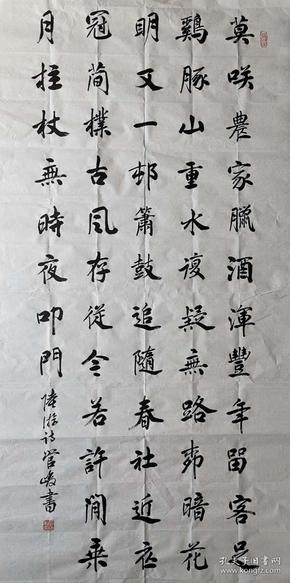 莫咲農家臘酒渾豐年留客足
鷄豚山重水複疑無路柳暗花
明又一邨簫鼓追隨春社近衣
冠簡樸古風存從今若許閒乗
月拄杖無時夜叩門
陸游诗管峻書
孔夫子旧书网